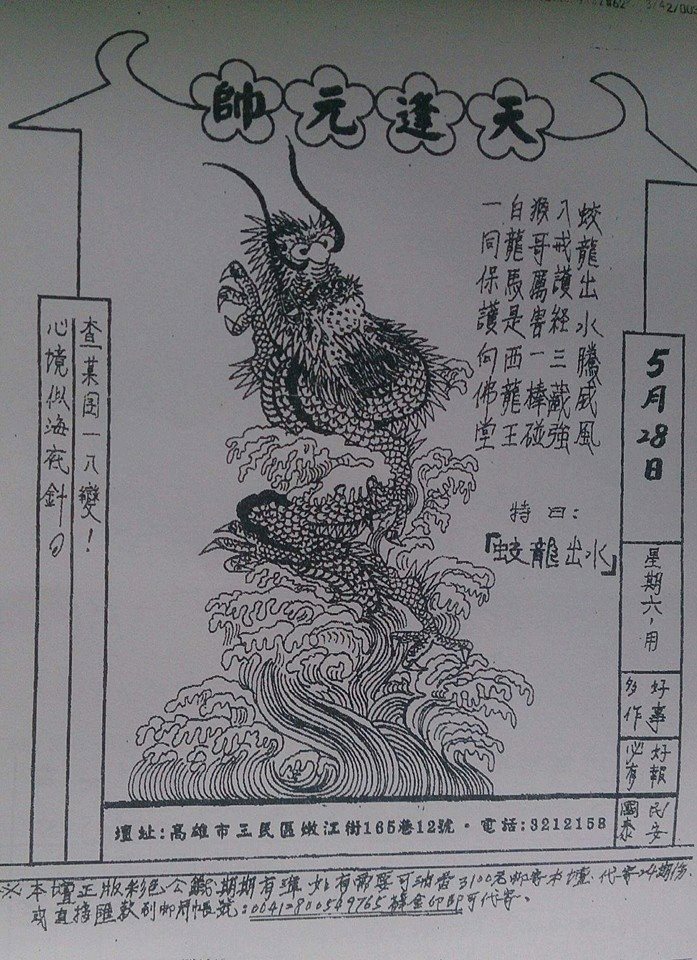 帥元逢天
蛟龍出水騰威風
八戒護經三藏強
猴哥厲害一棒碰
白龍馬是西龍王
一同保護向佛堂
特曰：
『蛟龍出水』
5月28日
星期六，用
好事多作
好報必有
民安國泰
查某囝一八變！
心境似海底針。
壇址:高雄市三民區嫩江街165巷12號・電話:3212158
※本壇正版彩色公鑰期期有準 如有需要可納香 3100元 郵寄本壇 代寄24期份
或直接匯款到郵局帳號:00412800549765 即可代寄。